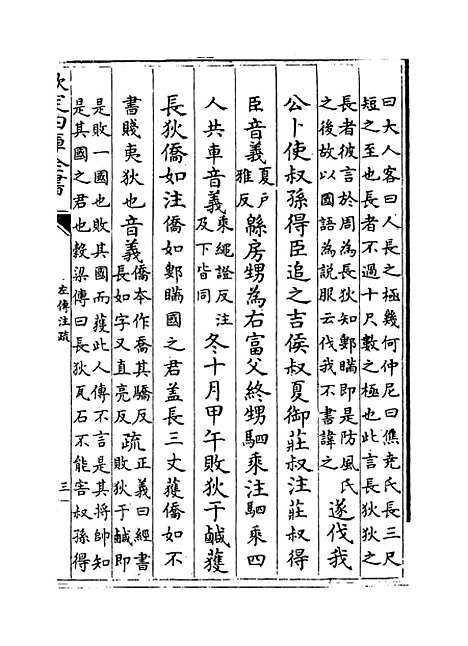 曰大人客曰人長之極幾何仲尼曰僬堯氏長三尺
短之至也長者不過十尺數之極也此言長狄之
長者彼言於周為長狄知鄋瞞即是防風氏
之後故以國語為説服云伐我不書諱之
遂伐我
公卜使叔孫得臣追之吉侯叔夏御莊叔注莊叔得
臣音義
夏戶
雅反
緜房甥為右富父終甥駟乘注駟乘四
人共車音義
乘繩證反注
及下皆同
冬十月甲午敗狄于鹹獲
長狄僑如注僑如鄋瞞國之君蓋長三丈獲僑如不
書賤夷狄也音義
僑本作喬其驕反
長如字又直亮反
疏
正義曰經書
敗狄于鹹即
是敗一國也敗其國而獲此人傳不言是其將帥知
是其國之君也穀梁傳曰長狄瓦石不能害叔孫得
欽定四庫全書
左傳注疏
三